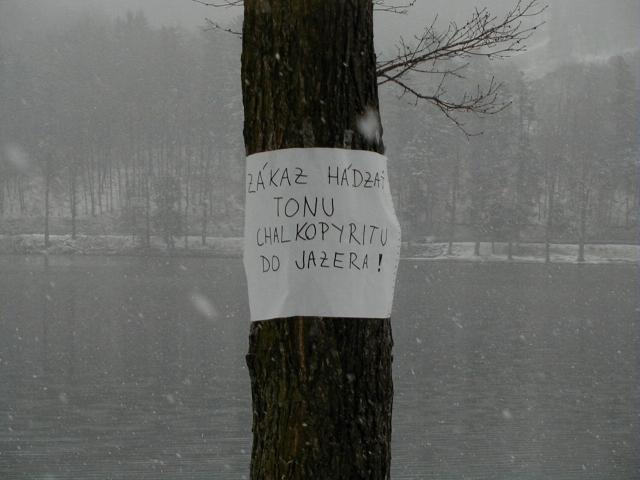 ZÁKAZ HÁDZAŤ
TONU
CHALKOPYRITU
DO JAZERA!